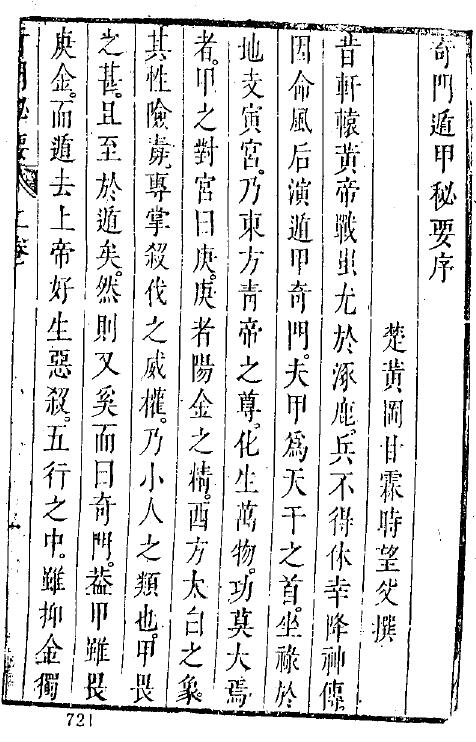 奇門遁甲秘要序
楚黃岡甘霖時望父撰
昔軒轅黃帝戰蚩尤於涿鹿。兵不得休。幸降神傳
因命風后演遁甲奇門。夫甲為天干之首。坐祿於
地支寅宮。乃東方青帝之尊。化生萬物。功莫大焉
者。甲之對宮曰庚。庚者陽金之精。西方太白之象。
其性險毒。專掌殺伐之威權。乃小人之類也。甲畏
之甚。且至於遁矣。然則又奚而曰奇門。葢甲雖畏
庚金。而遁去上帝好生惡殺。五行之中。雖抑金獨
奇門秘要 上卷
721